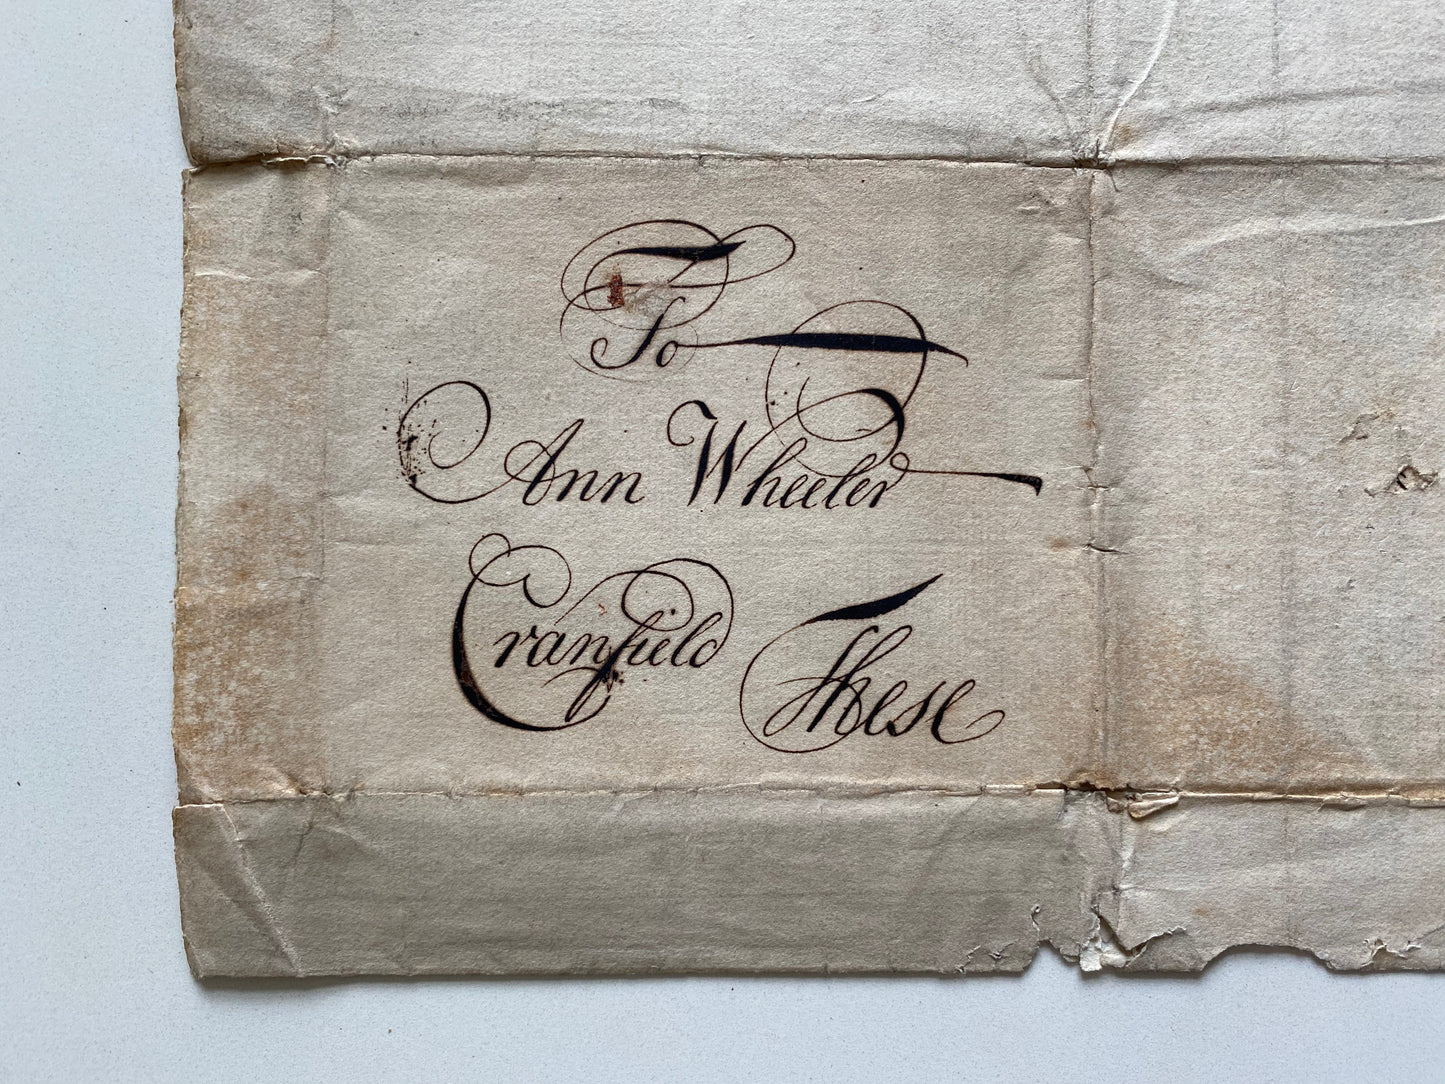 To
Ann Wheeler
Cranfield These